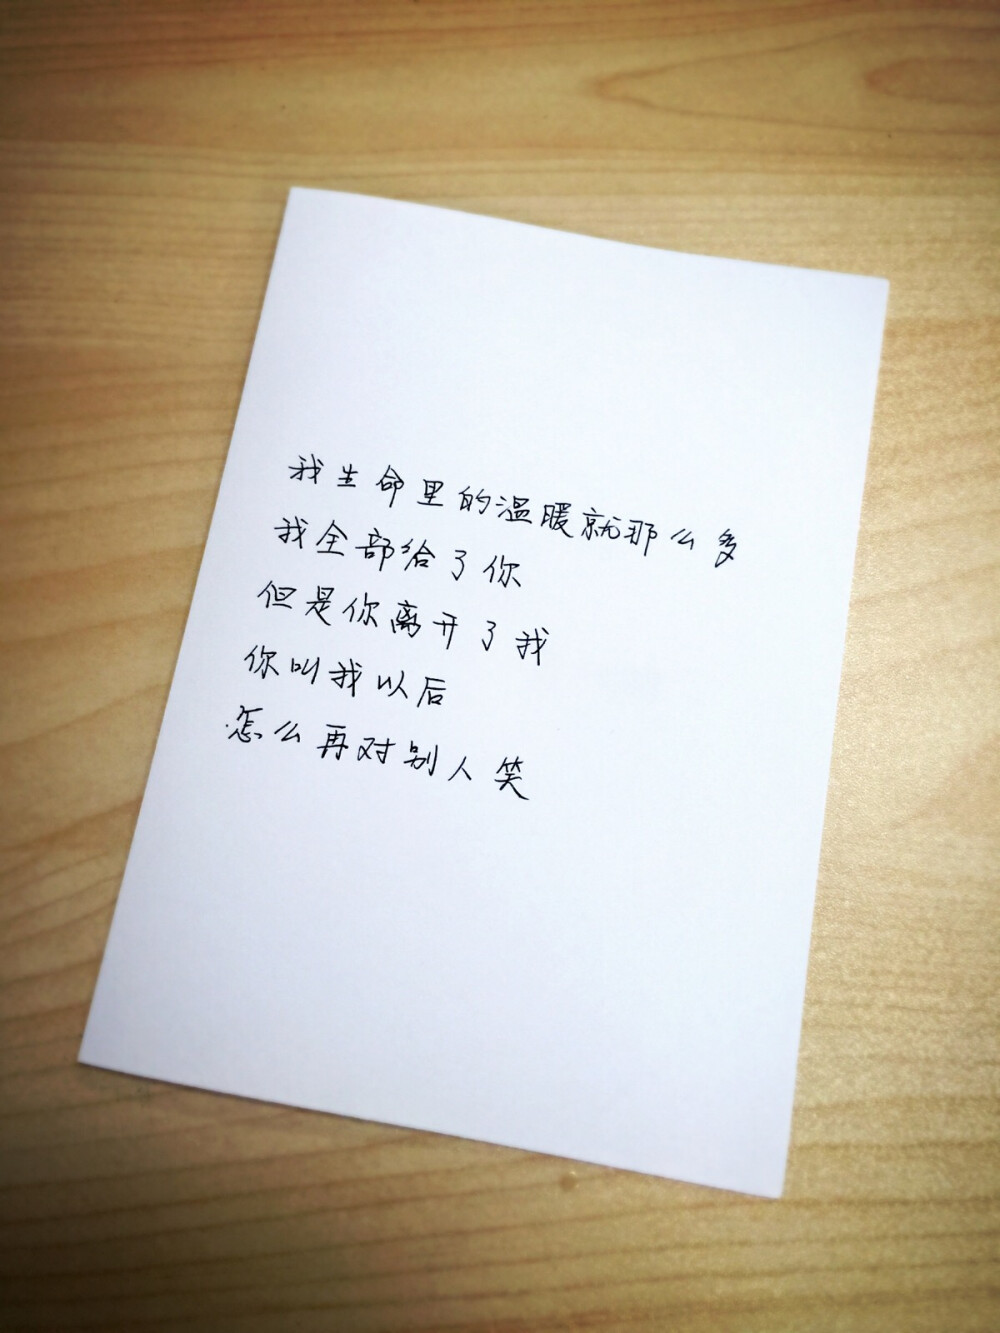 我生命里的温暖就那么多
我全部给了你
但是你离开了我
你叫我以后
怎么再对别人笑